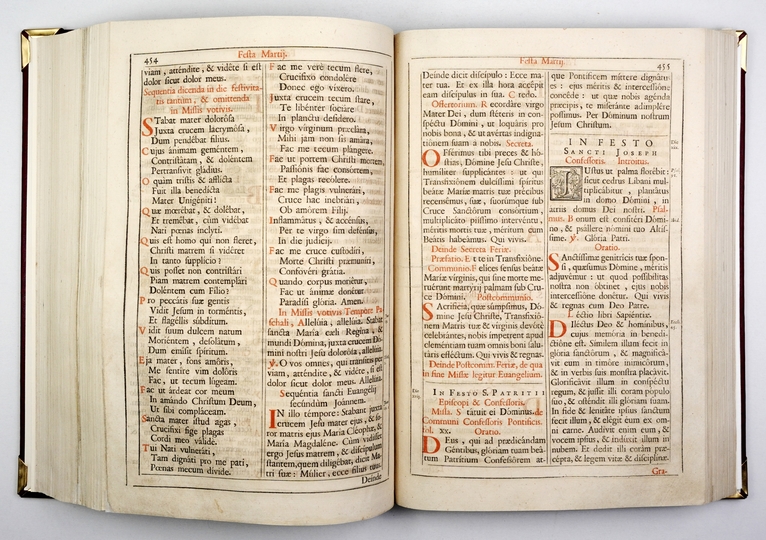 454
Festa Martij.
viam, atténdite, & vidéte si est
dolor sicut dolor meus.
Sequentia dicenda in die festivita-
tis tantum, & omittenda
in Missis votivis.
STabat mater dolorósa
Juxta crucem lacrymósa,
Dum pendébat filius.
Cujus ánimam geméntem,
Contristátam, & doléntem
Pertransívit gladius.
O quàm tristis & afflícta
Fuit illa benedícta
Mater Unigéniti!
Quæ mœrébat, & dolébat,
Et tremébat, cùm vidébat
Nati pœnas ínclyti.
Quis est homo qui non fleret,
Christi matrem si vidéret
In tanto supplício?
Quis posset non contristári
Piam matrem contemplári
Doléntem cum Fílio?
Pro peccátis suæ gentis
Vidit Jesum in torméntis,
Et flagéllis súbditum.
Vidit suum dulcem natum
Moriéntem, desolátum,
Dum emísit spíritum.
Eja mater, fons amóris,
Me sentíre vim dolóris
Fac, ut tecum lúgeam.
Fac ut árdeat cor meum
In amándo Christum Deum,
Ut sibi compláceam.
Sancta mater istud agas,
Crucifíxi fige plagas
Cordi meo válide.
Tui Nati vulneráti,
Tam dignáti pro me pati,
Pœnas mecum dívide.
Fac me verè tecum flere,
Crucifíxo condolére
Donec ego víxero.
Juxta crucem tecum stare,
Te libénter sociáre
In planctu desídero.
Virgo vírginum præclára,
Mihi jam non sis amára,
Fac me tecum plángere.
Fac ut portem Christi mortem,
Passiónis fac consórtem,
Et plagas recólere.
Fac me plagis vulnerári,
Cruce hac inebriári,
Ob amórem Fílij.
Inflammátus, & accénsus,
Per te virgo sim defénsus,
In die judícij.
Fac me cruce custodíri,
Morte Christi præmuníri,
Confovéri grátia.
Quando corpus moriétur,
Fac ut ánimæ donétur
Paradísi glória. Amen.
In Missis votivis Tempore Pa-
schali, Allelúia, allelúia. Stabat
sancta María cæli Regína, &
mundi Dómina, juxta crucem Dó-
mini nostri Jesu dolorósa, allelúia.
℣. O vos omnes, qui transítis per
viam, atténdite, & vidéte, si est
dolor sicut dolor meus. Allelúia.
Sequéntia sancti Euangélij
secúndum Joánnem.
IN illo témpore: Stabant juxta
crucem Jesu mater ejus, & so-
ror matris ejus María Cléophæ, &
María Magdaléne. Cùm vidísset
ergo Jesus matrem, & discípulum
stantem, quem diligébat, dicit Ma-
tri suæ: Múlier, ecce fílius tuus.
Deinde
Festa Martij.
455
Deínde dicit discípulo: Ecce ma-
ter tua. Et ex illa hora accépit
eam discípulus in sua. Credo.
Offertorium. Recordáre virgo
Mater Dei, dum stéteris in con-
spéctu Dómini, ut loquáris pro
nobis bona, & ut avértas indigna-
tiónem suam a nobis. Secreta.
OFférimus tibi preces & hó-
stias, Dómine Jesu Christe,
humíliter supplicántes: ut qui
Transfixiónem dulcíssimi spíritus
beátæ Maríæ matris tuæ précibus
recensémus, suæ, suorúmque sub
Cruce Sanctórum consórtium,
multiplicáto piíssimo intervéntu,
méritis mortis tuæ, méritum cum
Beátis habeámus. Qui vivis.
Deinde Secreta Feriæ.
Præfatio. Et te in Transfixióne.
Communio. Felíces sensus beátæ
Maríæ vírginis, qui sine morte me-
ruérunt martýrij palmam sub Cru-
ce Dómini. Postcommunio.
SAcrifícia, quæ súmpsimus, Dó-
mine Jesu Christe, Transfixió-
nem Matris tuæ & vírginis devótè
celebrántes, nobis ímpetrent apud
cleméntiam tuam omnis boni salu-
táris efféctum. Qui vivis & regnas.
Deinde Postcomm. Feriæ, de qua
in fine Missæ legitur Euangelium.
IN FESTO S. PATRITII
Episcopi & Confessoris.
Missa. Státuit ei Dóminus. de
Communi Confessoris Pontificis.
fol. xx. Oratio.
DEus, qui ad prædicándam
Géntibus, glóriam tuam beá-
tum Patrítium Confessórem at-
que Pontíficem míttere dignátus
es: ejus méritis & intercessióne
concéde: ut quæ nobis agénda
præcipis, te miseránte adimplére
possímus. Per Dóminum nostrum
Jesum Christum.
IN FESTO
SANCTI JOSEPH
Confessoris. Introitus.
JUstus ut palma florébit:
sicut cedrus Líbani mul-
tiplicábitur, plantátus
in domo Dómini, in
átriis domus Dei nostri. Psal-
mus. Bonum est confitéri Dómi-
no, & psállere nómini tuo Altíssi-
me. ℣. Glória Patri.
Oratio.
SAnctíssimæ genitrícis tuæ spon-
si, quǽsumus Dómine, méritis
adjuvémur: ut quod possibílitas
nostra non óbtinet, ejus nobis
intercessióne donétur. Qui vivis
& regnas cum Deo Patre.
Léctio libri Sapiéntiæ.
DIléctus Deo & homínibus,
cujus memória in benedi-
ctióne est. Símilem illum fecit in
glória sanctórum, & magnificá-
vit eum in timóre inimicórum,
& in verbis suis monstra placávit.
Glorificávit illum in conspéctu
regum, & jussit illi coram pópulo
suo, & osténdit illi glóriam suam.
In fide & lenitáte ipsíus sanctum
fecit illum, & elégit eum ex om-
ni carne. Audívit enim eum, &
vocem ipsíus, & indúxit illum in
nubem. Et dedit illi coram præ-
cépta, & legem vitæ & disciplínæ.
Gra-